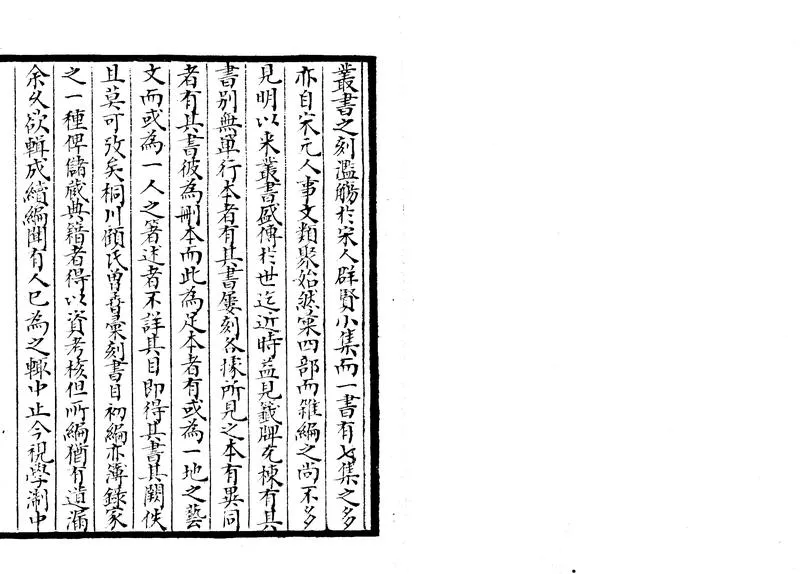 叢書之刻濫觴於宋人群賢小集而一書有七集之多
亦自宋元人事文類聚始然稟四部而雜編之尚不多
見明以来叢書盛傳於世迄近時益見籤牌充棟有其
書別無單行本者有其書屡刻各據所見之本有異同
者有其書彼為刪本而此為足本者有或為一地之藝
文而或為一人之著述者不詳其目即得其書其闕佚
且莫可攷矣桐川顧氏曽彚刻書目初編亦簿錄家
之一種俾儲藏典籍者得以資考核但所編猶有遺漏
余久欲輯成續編聞有人已為之輒中止今視學淛中